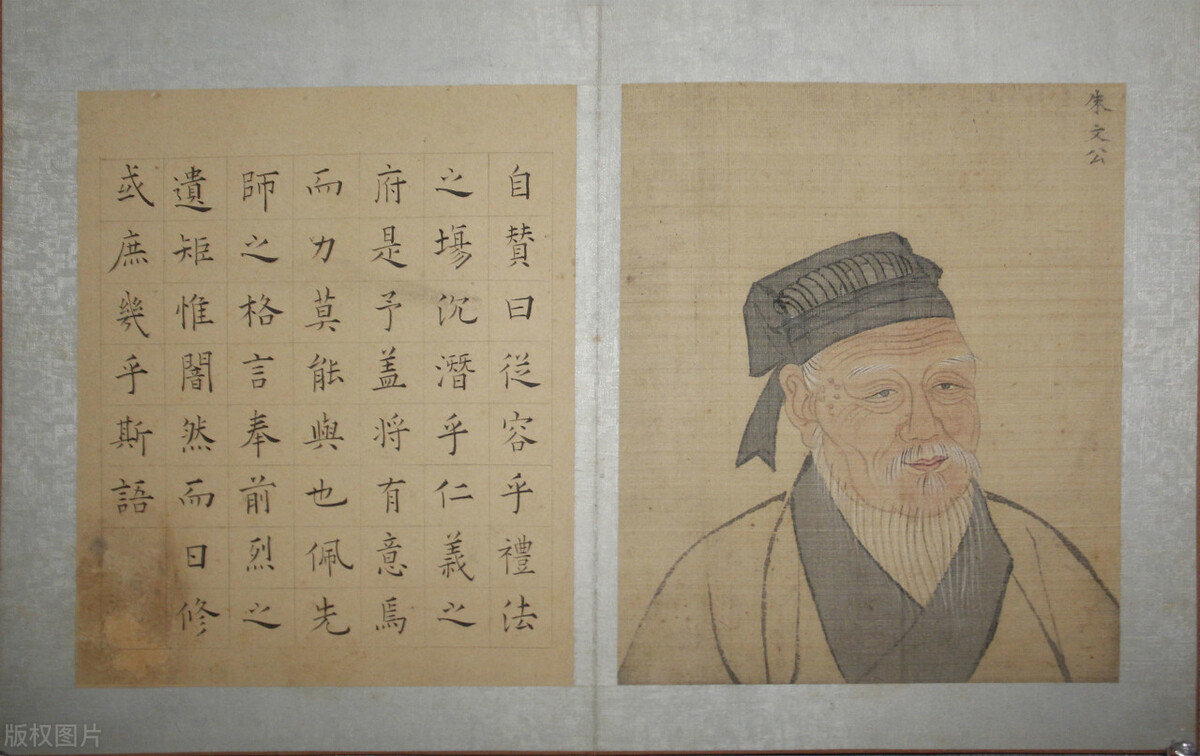 朱文公
自贊曰從容乎禮法
之場沉潛乎仁義之
府是予蓋將有意焉
而力莫能與也佩先
師之格言奉前烈之
遺矩惟闇然而日修
或庶幾乎斯語
版权图片